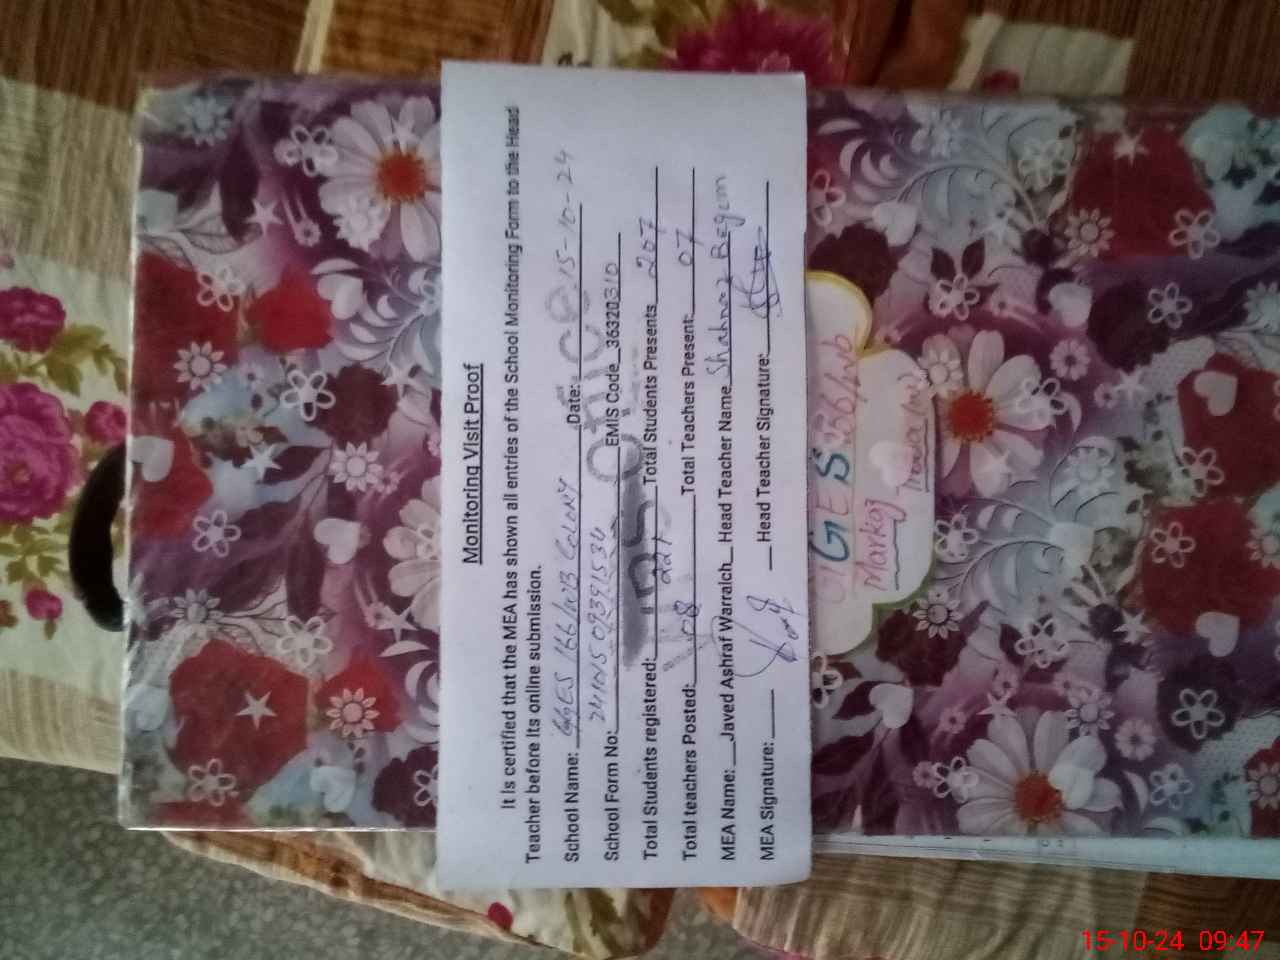 Monitoring Visit Proof
It is certified that the MEA has shown all entries of the School Monitoring Form to the Head
Teacher before its online submission.
School Name: GGES 166/WB COLONY Date: 15-10-24
School Form No: EMIS Code 36320310
Total Students registered: 221 Total Students Presents 207
Total teachers Posted: 08 Total Teachers Present: 07
MEA Name: Javed Ashraf Warraich Head Teacher Name Shahnaz Begum
MEA Signature: Head Teacher Signature:
GES
Markaz
15-10-24 09:47